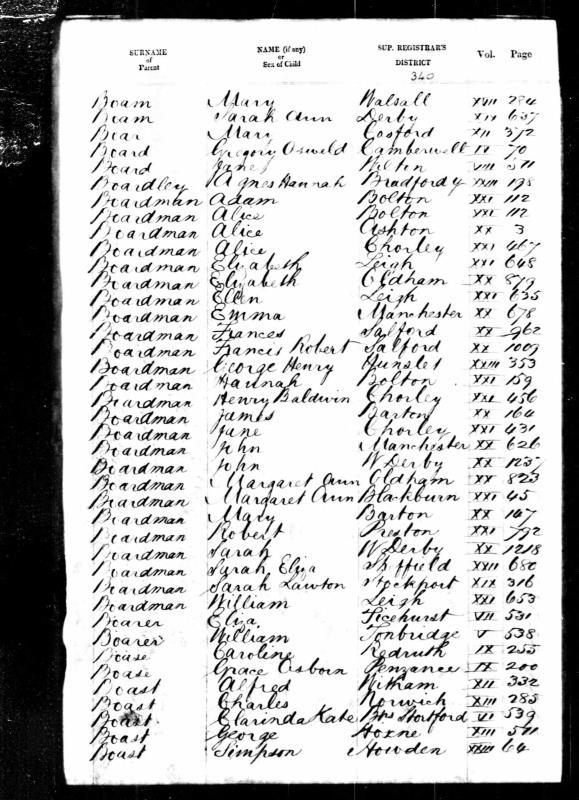 SURNAME of Parent NAME (if any) or Sex of Child SUP. REGISTRAR'S DISTRICT Vol. Page
340
Boam Mary Walsall XVII 284
Biam Sarah Ann Derby XIX 637
Boar Mary Cosford XII 372
Board Gregory Osweld Camberwell IV 70
Board Jane Wilton VIII 511
Boardley Agnes Hannah Bradford y XXIII 198
Boardman Adam Bolton XXI 112
Boardman Alice Bolton XXI 112
Boardman Alice Ashton XX 3
Boardman Alice Chorley XXI 467
Boardman Elizabeth Leigh XXI 648
Boardman Elizabeth Oldham XX 879
Boardman Ellen Leigh XXI 635
Boardman Emma Manchester XX 678
Boardman Frances Salford XX 962
Boardman Francis Robert Salford XX 1009
Boardman George Henry Hunslet XXIII 353
Boardman Hannah Bolton XXI 159
Boardman Henry Baldwin Chorley XXI 456
Boardman James Barton XX 164
Boardman Jane Chorley XXI 431
Boardman John Manchester XX 626
Boardman John W Derby XX 1237
Boardman Margaret Ann Oldham XX 823
Boardman Margaret Ann Blackburn XXI 45
Boardman Mary Barton XX 147
Boardman Robert Preston XXI 792
Boardman Sarah W Derby XX 1218
Boardman Sarah Eliza Sheffield XXII 680
Boardman Sarah Lawton Stockport XIX 316
Boardman William Leigh XXI 653
Boarer Eliza Ticehurst VII 531
Boarer William Tonbridge V 538
Boase Caroline Redruth IX 255
Boase Grace Osborn Penzance IX 200
Boast Alfred Witham XII 332
Boast Charles Norwich XIII 285
Boast Clarinda Kate Bps Stortford VI 539
Boast George Hoxne XIII 511
Boast Simpson Howden XXIII 64